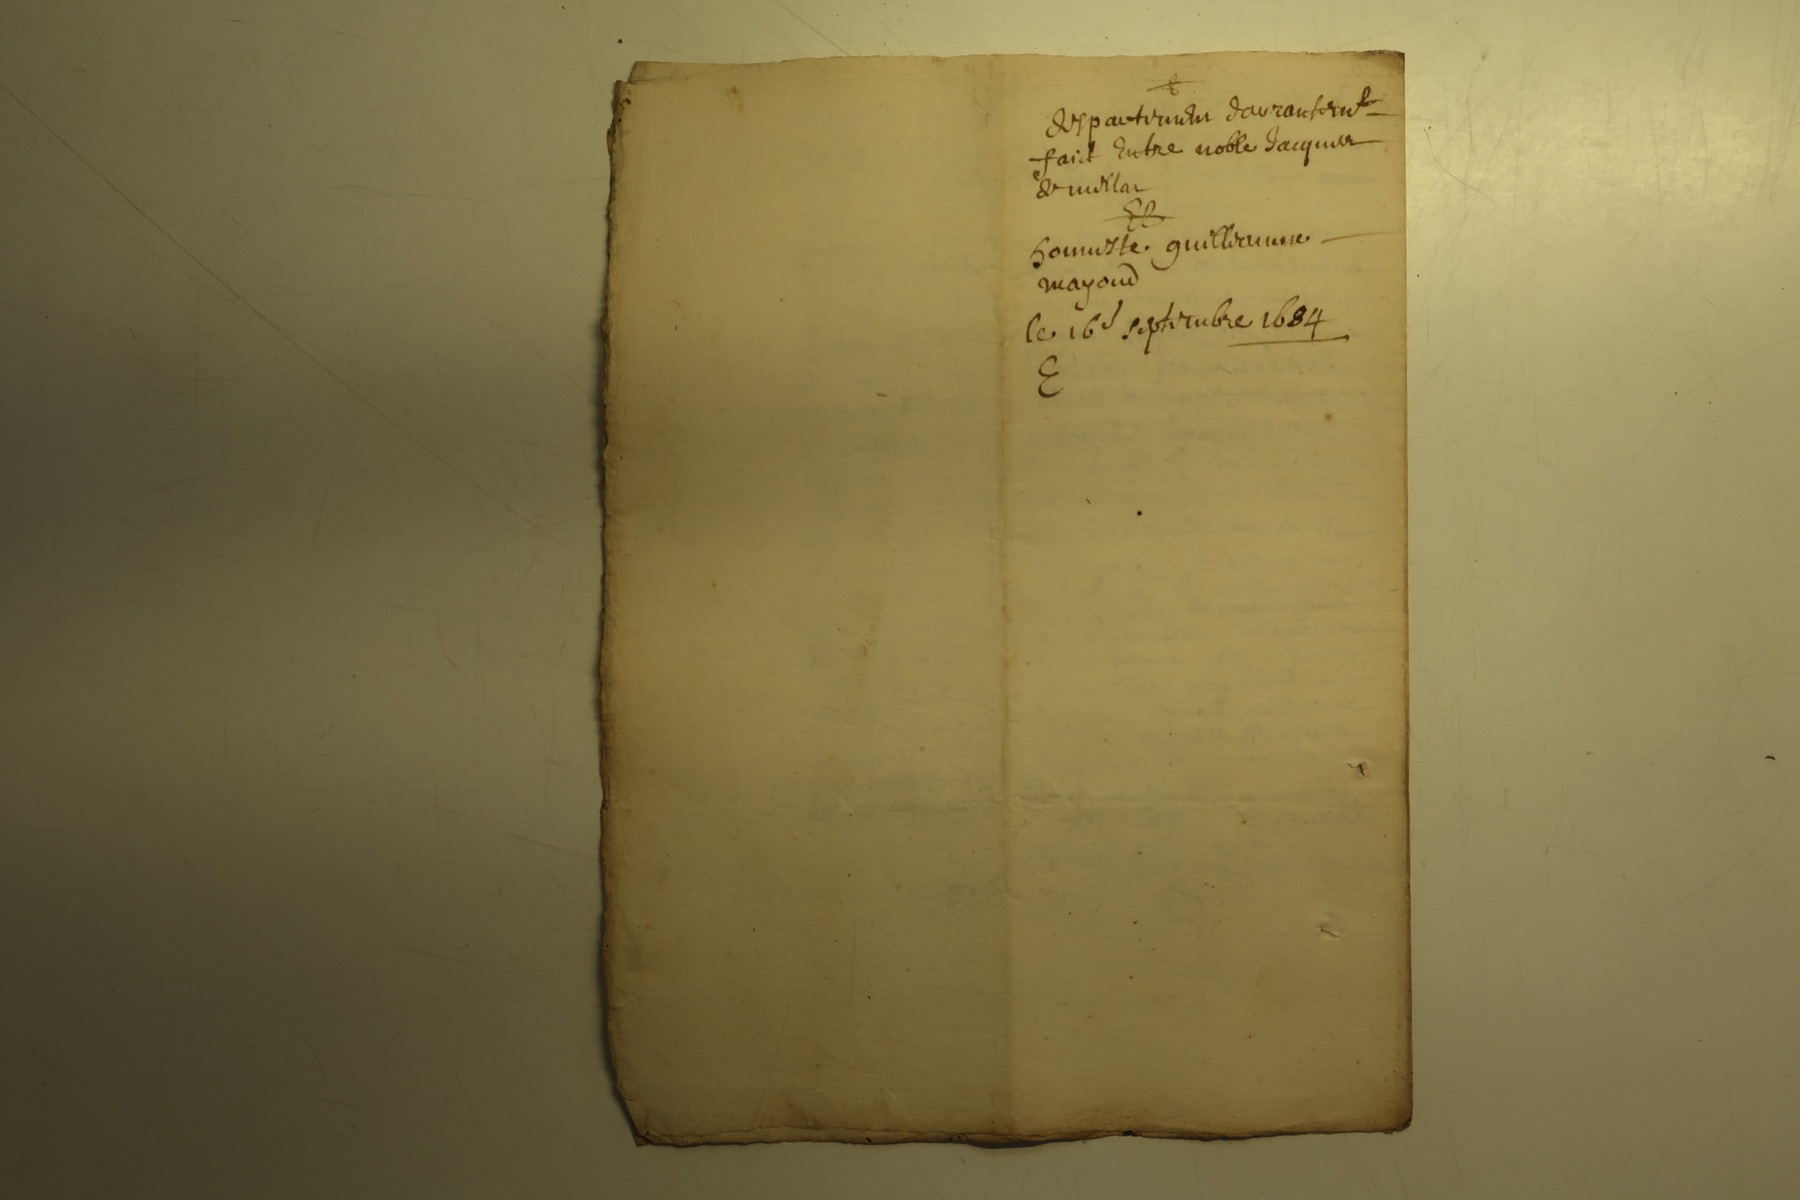 despartement darrantemt
faict Entre noble Jacques
de millar
Et
honneste guilliaume
mayoud
le 16e septembre 1684
E